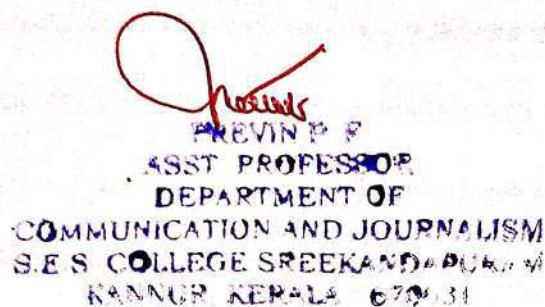 PREVIN P F
ASST PROFESSOR
DEPARTMENT OF
COMMUNICATION AND JOURNALISM
S.E.S COLLEGE SREEKANDAPURAM
KANNUR KERALA 670631